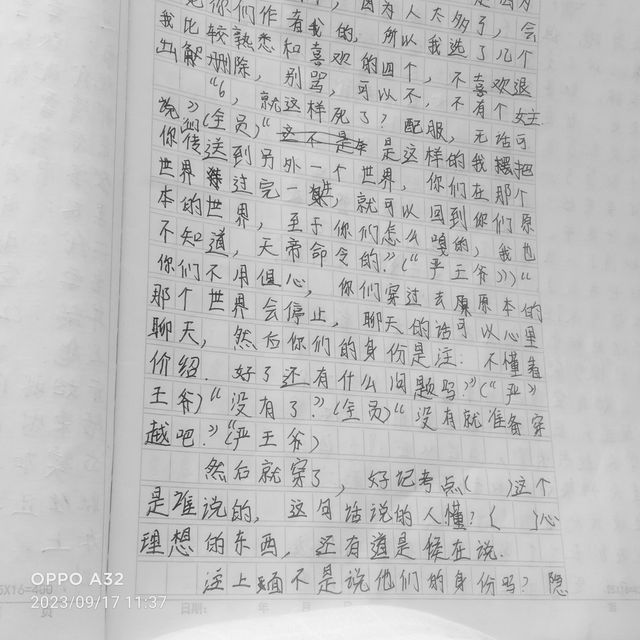 见你们作者我的，因为人太多了，会
我比较熟悉和喜欢的，所以我选了几个
出解删除，别骂，可以不，不喜欢退
"6，就这样死了？配服，无话可
说"(全员)"这不是 是这样的我摆把
你传送到另外一个世界，你们在那个
世界 过完一 ，就可以回到你们原
本的世界，至于你们怎么嘎的，我也
不知道，天帝命令的"("严王爷")"
你们不用但心，你们穿过去原原本的
那个世界会停止，聊天的话可以心里
聊天，然后你们的身份是注：不懂看
价绍．好了还有什么问题吗？"("严"
王爷)"没有了？"(全员)"没有就准备穿
越吧？"(严王爷)
然后就穿了，好记考点( )这个
是谁说的，这句话说的人懂？( )心
理想的东西，还有道是候在说．
注上面不是说他们的身份吗？隐
OPPO A32
2023/09/17 11:37
日期：